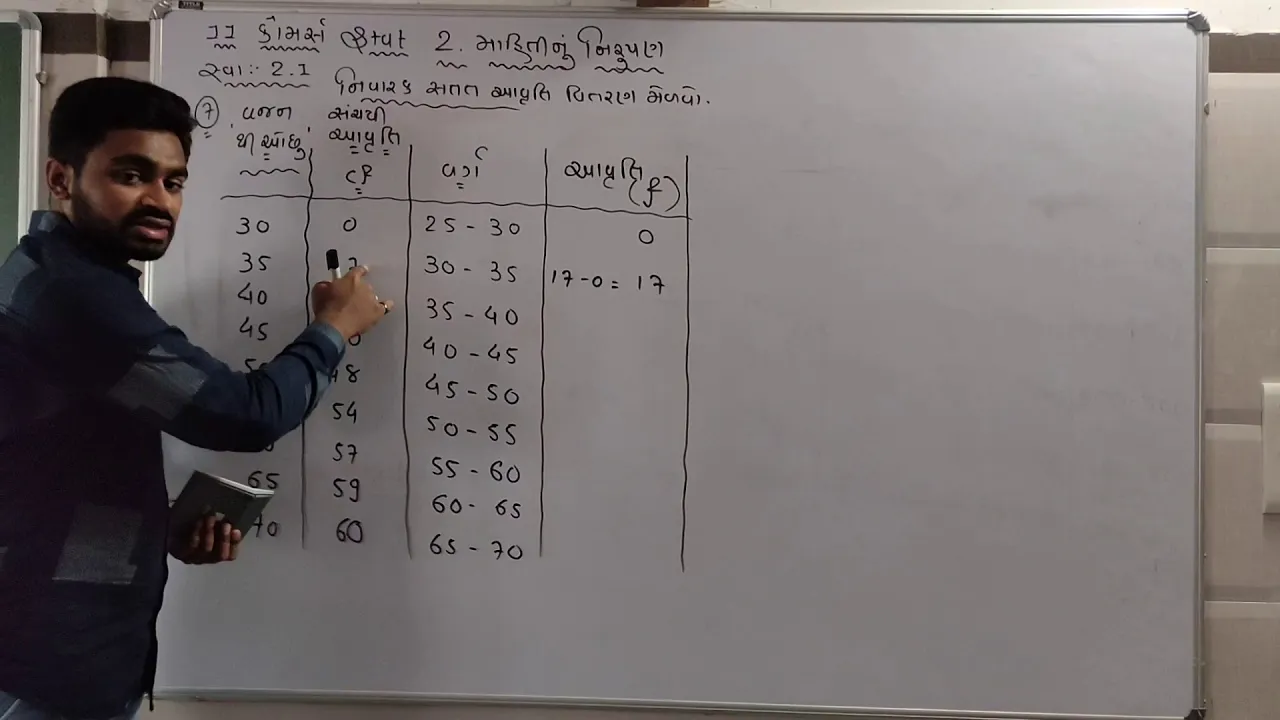 11 કોમર્સ Stat 2. માહિતીનું નિરૂપણ
સ્વા:- 2.1 નિવારક સતત આવૃત્તિ વિતરણ મેળવો.
(7) વજન સંચયી
'થી ઓછુ' આવૃત્તિ
cf વર્ગ આવૃત્તિ (f)
30 0 25 - 30 0
35 30 - 35 17-0 = 17
40 35 - 40
45 40 - 45
48 45 - 50
54 50 - 55
57 55 - 60
65 59 60 - 65
70 60 65 - 70